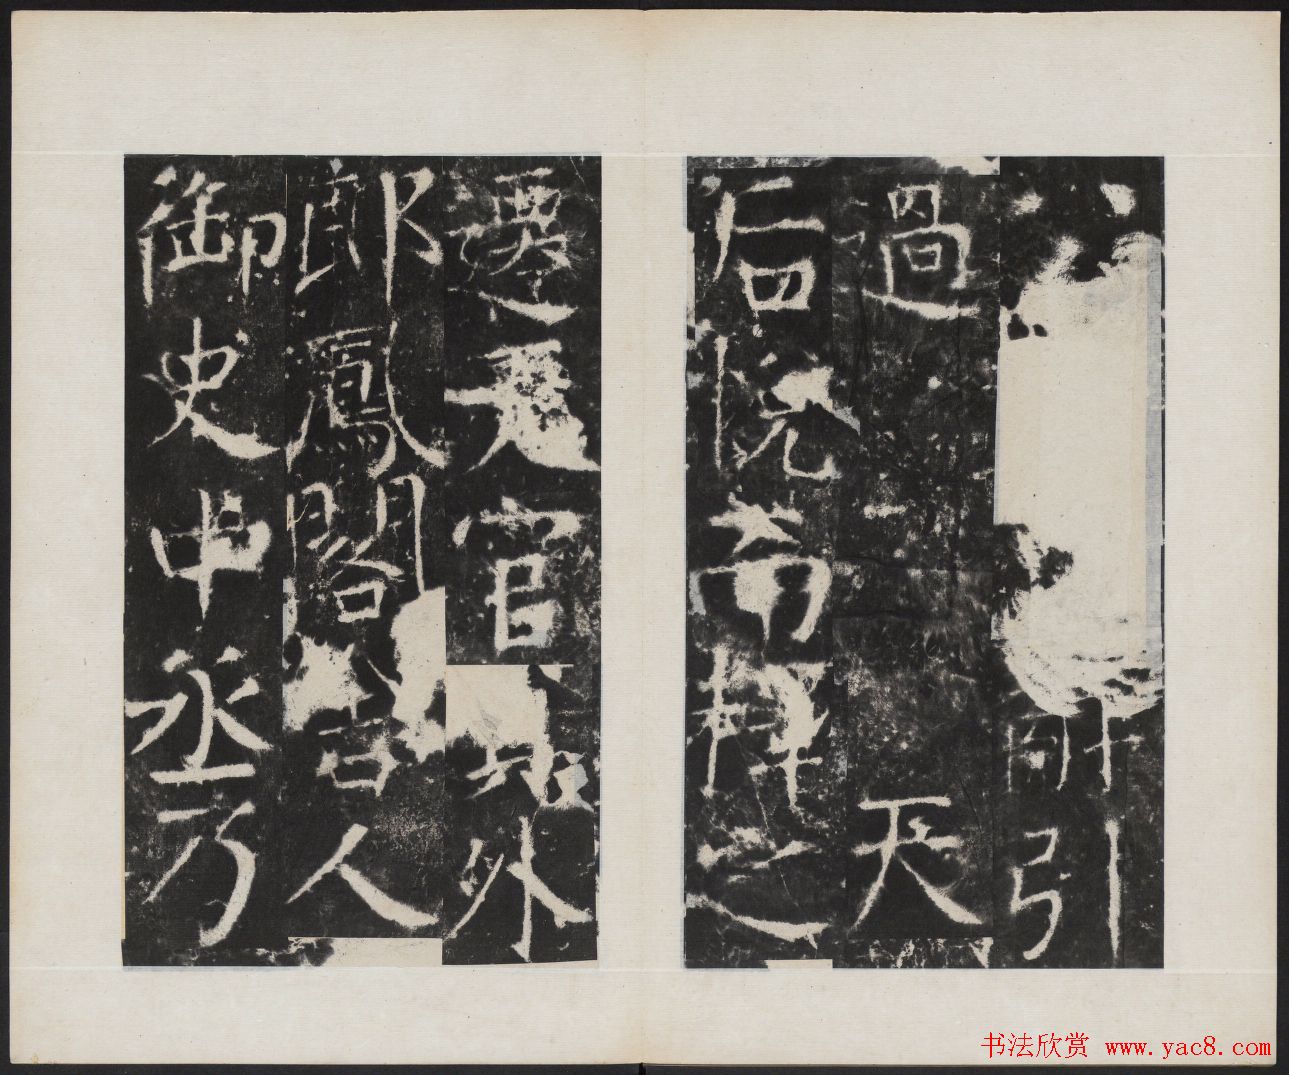 引
過 天
后悅 之
遷天官員外
郎鳳閣舍人
御史中丞乃
书法欣赏 www.yac8.com